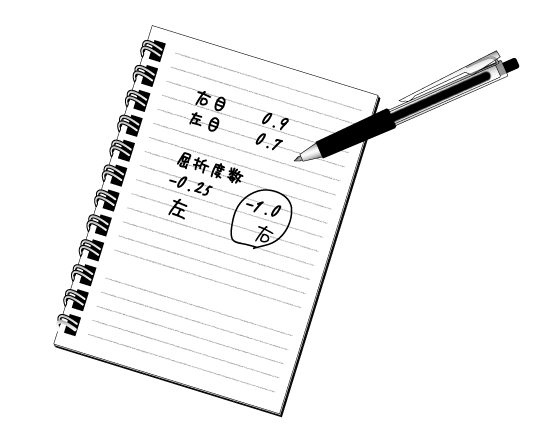 右目 0.9
左目 0.7
屈折度数
-0.25 -1.0
左 右